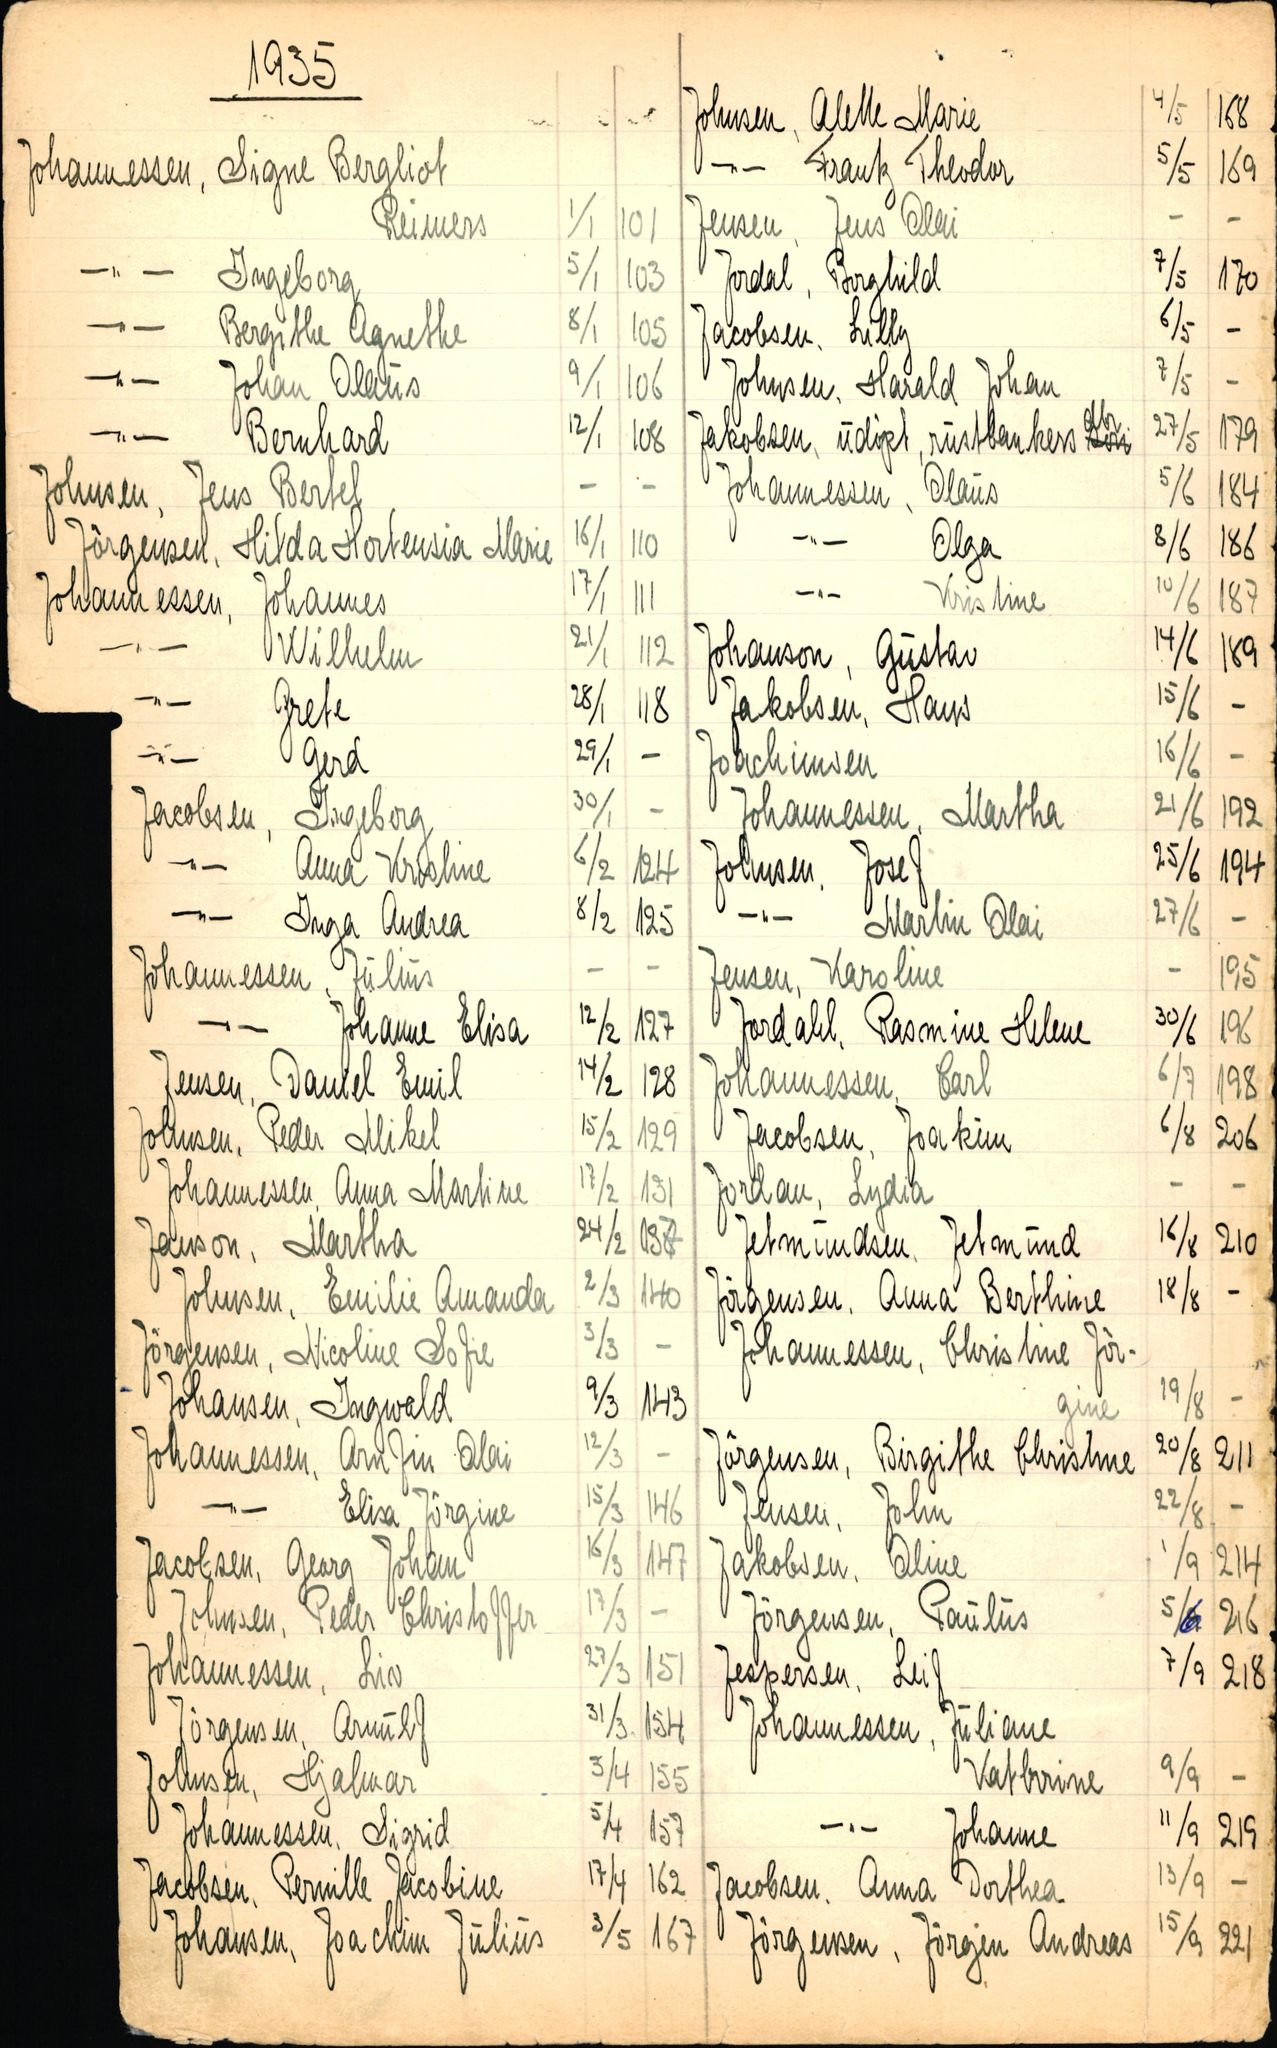 1935
Johannessen, Signe Bergliot
Reimers 1/1 101
—"— Ingeborg 5/1 103
—"— Bergithe Agnethe 8/1 105
—"— Johan Olaüs 9/1 106
—"— Bernhard 12/1 108
Johnsen, Jens Bertel - -
Jörgensen, Hilda Hortensia Marie 16/1 110
Johannessen, Johannes 17/1 111
—"— Wilhelm 21/1 112
—"— Grete 28/1 118
—"— Gerd 29/1 -
Jacobsen, Ingeborg 30/1 -
—"— Anna Kristine 6/2 124
—"— Inga Andrea 8/2 125
Johannessen, Jülius - -
—"— Johanne Elisa 12/2 127
Jensen, Daniel Emil 14/2 128
Johnsen, Peder Mikel 15/2 129
Johannessen, Anna Martine 17/2 131
Janson, Martha 24/2
Johnsen, Emilie Amanda 2/3 140
Jörgensen, Nicoline Sofie 3/3 -
Johansen, Ingwald 9/3 143
Johannessen, Arnfin Olai 12/3 -
—"— Elisa Jörgine 15/3 146
Jacobsen, Georg Johan 16/3 147
Johnsen, Peder Christoffer 17/3 -
Johannessen, Liv 27/3 151
Jörgensen, Arnülf 31/3 154
Johnsen, Hjalmar 3/4 155
Johannessen, Sigrid 5/4 157
Jacobsen, Pernille Jacobine 17/4 162
Johansen, Joachim Jülius 3/5 167
Johnsen, Alette Marie 4/5 168
—"— Frantz Theodor 5/5 169
Jensen, Jens Olai - -
Jordal, Borghild 7/5 170
Jacobsen, Lilly 6/5 -
Johnsen, Harald Johan 7/5 -
Jakobsen, üdöpt, rüstbankers 27/5 179
Johannessen, Olaüs 5/6 184
—"— Olga 8/6 186
—"— Kristine 10/6 187
Johanson, Güstav 14/6 189
Jakobsen, Hans 15/6 -
Joachimsen 16/6 -
Johannessen, Martha 21/6 192
Johnsen, Josef 25/6 194
—"— Martin Olai 27/6 -
Jensen, Karoline - 195
Jordahl, Rasmine Helene 30/6 196
Johannessen, Carl 6/7 198
Jacobsen, Joakim 6/8 206
Jordan, Lydia - -
Jetmündsen, Jetmünd 16/8 210
Jörgensen, Anna Berthine 18/8 -
Johannessen, Christine Jör-
gine 19/8 -
Jörgensen, Birgithe Christine 20/8 211
Jensen, John 22/8 -
Jakobsen, Oline 1/9 214
Jörgensen, Paülüs 216
Jespersen, Leif 7/9 218
Johannessen, Jüliane
Kathrine 9/9 -
—"— Johanne 11/9 219
Jacobsen, Anna Dorthea 13/9 -
Jörgensen, Jörgen Andreas 15/9 221